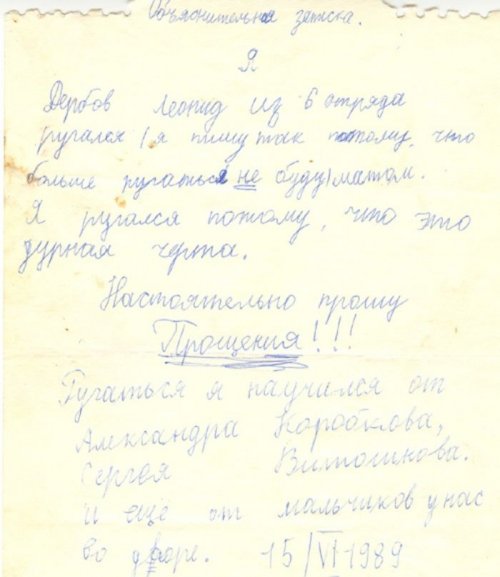 Объяснительная записка.
Я
Дербов Леонид из 6 отряда
ругался (я пишу так потому, что
больше ругаться не буду) матом.
Я ругался потому, что это
дурная черта.
Настоятельно прошу
Прощения!!!
Ругаться я научился от
Александра Коробкова,
Сергея Витошинова.
и ещё от мальчиков у нас
во дворе. 15/VI 1989